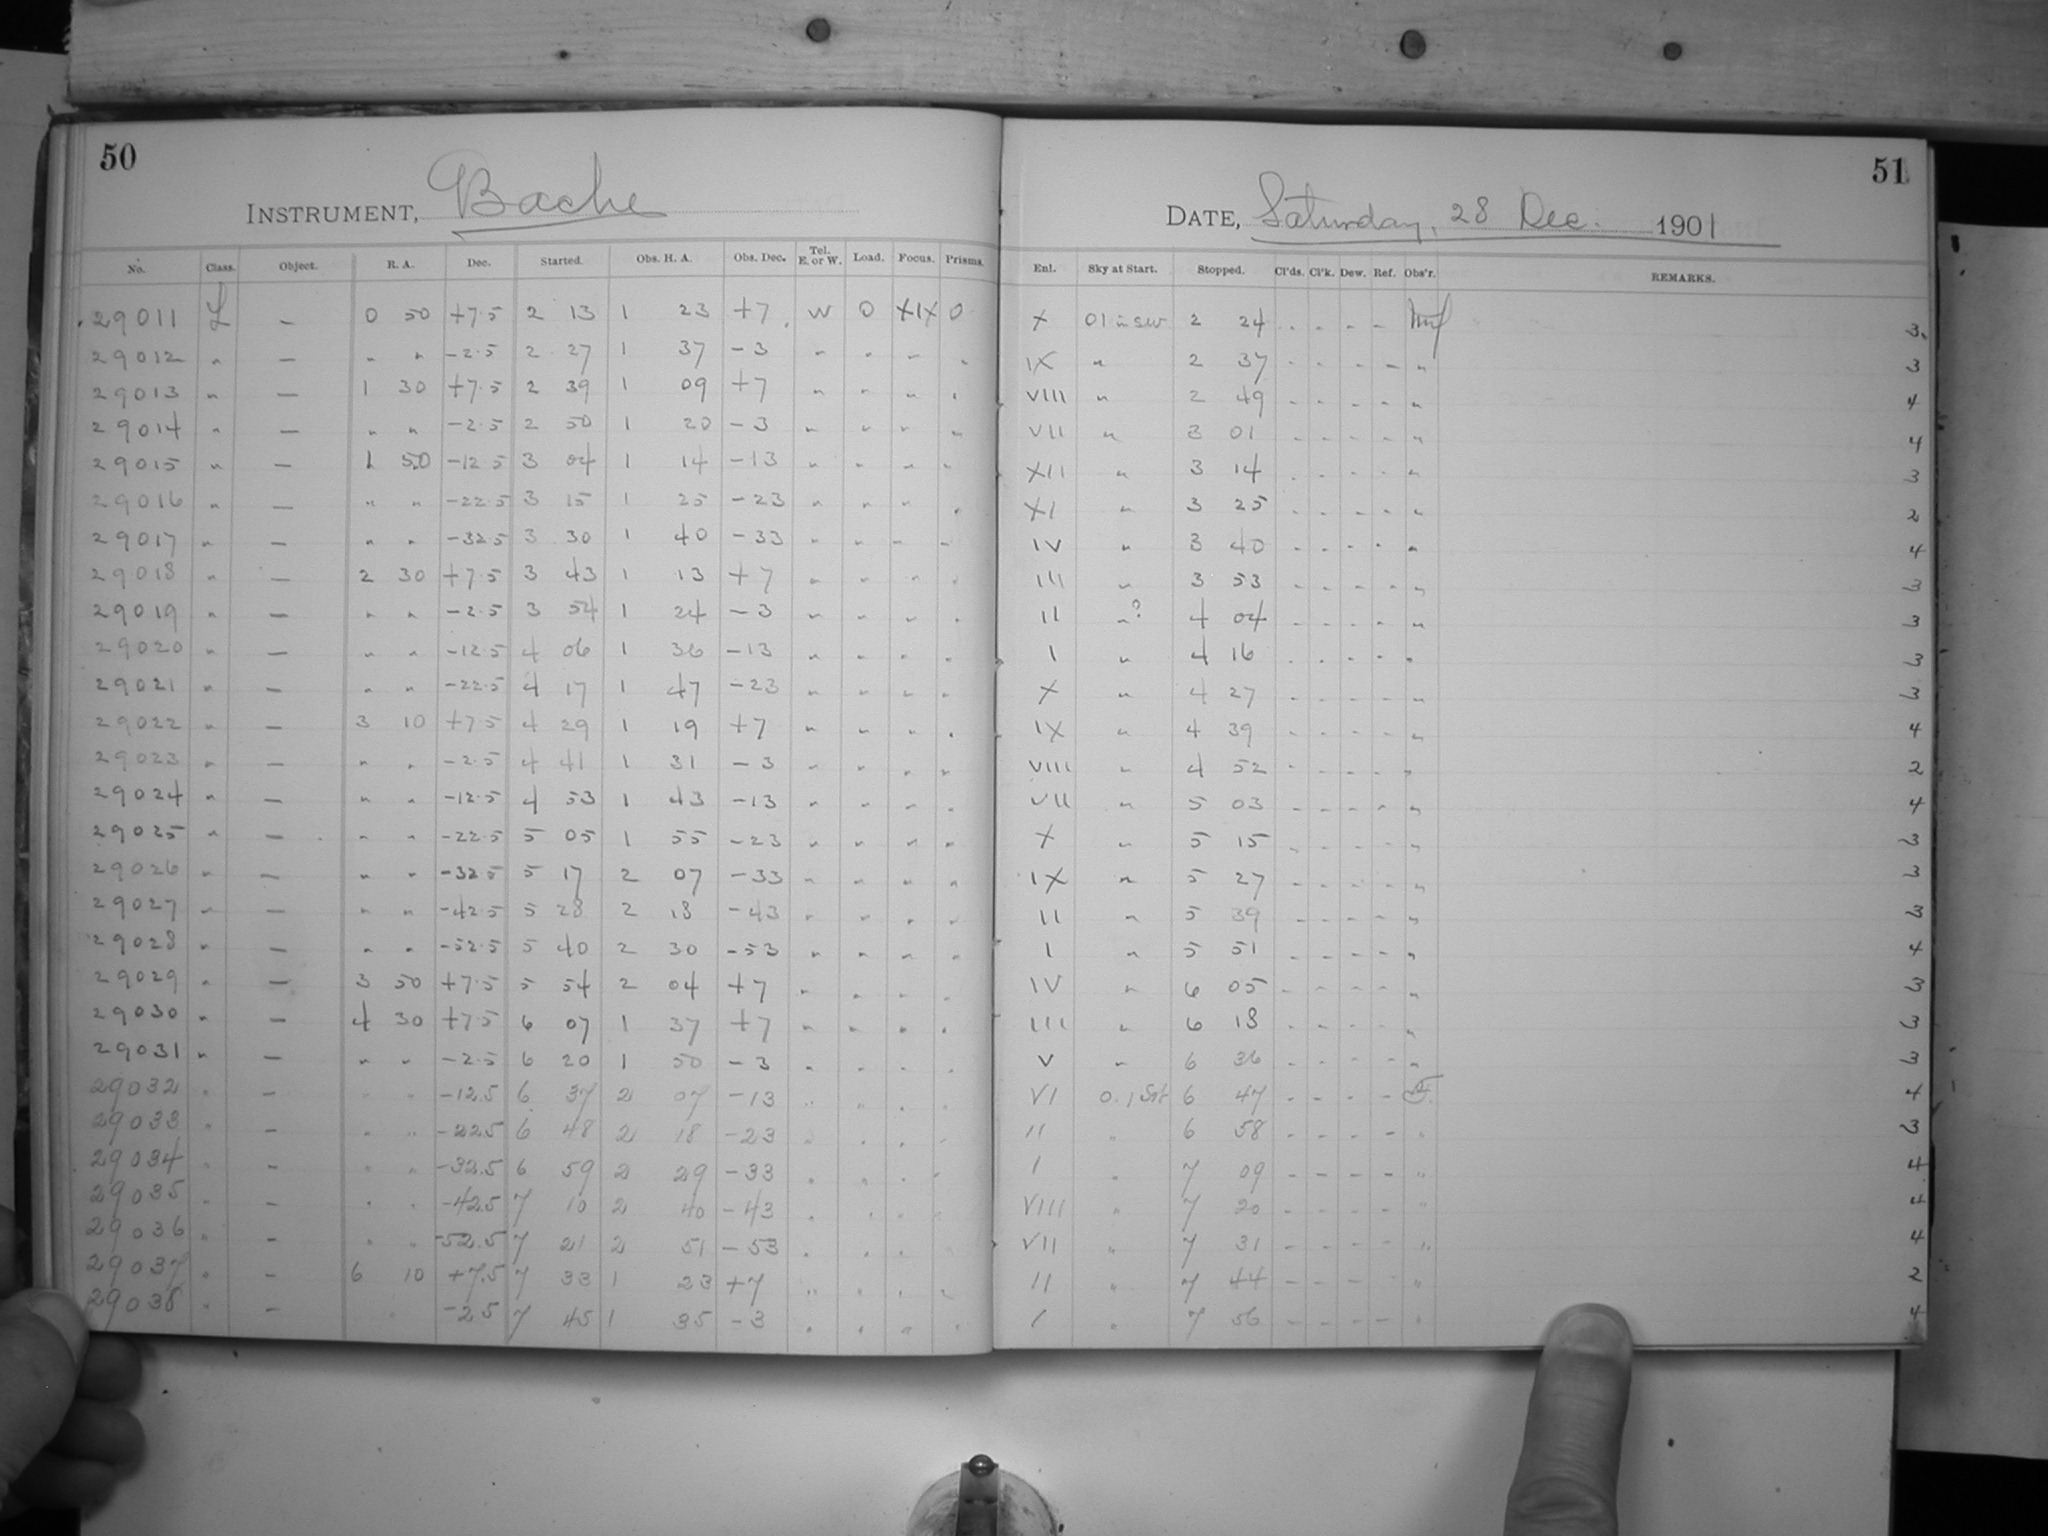 50
INSTRUMENT, Bache
No. Class. Object. R. A. Dec. Started. Obs. H. A. Obs. Dec. Tel. E. or W. Load. Focus. Prisms.
29011 L — 0 50 +7.5 2 13 1 23 +7 W 0 XIX 0
29012 " — " " -2.5 2 27 1 37 -3 " " " "
29013 " — 1 30 +7.5 2 39 1 09 +7 " " " "
29014 " — " " -2.5 2 50 1 20 -3 " " " "
29015 " — 1 50 -12.5 3 04 1 14 -13 " " " "
29016 " — " " -22.5 3 15 1 25 -23 " " " "
29017 " — " " -32.5 3 30 1 40 -33 " " " "
29018 " — 2 30 +7.5 3 43 1 13 +7 " " " "
29019 " — " " -2.5 3 54 1 24 -3 " " " "
29020 " — " " -12.5 4 06 1 36 -13 " " " "
29021 " — " " -22.5 4 17 1 47 -23 " " " "
29022 " — 3 10 +7.5 4 29 1 19 +7 " " " "
29023 " — " " -2.5 4 41 1 31 -3 " " " "
29024 " — " " -12.5 4 53 1 43 -13 " " " "
29025 " — " " -22.5 5 05 1 55 -23 " " " "
29026 " — " " -32.5 5 17 2 07 -33 " " " "
29027 " — " " -42.5 5 28 2 18 -43 " " " "
29028 " — " " -52.5 5 40 2 30 -53 " " " "
29029 " — 3 50 +7.5 5 54 2 04 +7 " " " "
29030 " — 4 30 +7.5 6 07 1 37 +7 " " " "
29031 " — " " -2.5 6 20 1 50 -3 " " " "
29032 " — " " -12.5 6 37 2 07 -13 " " " "
29033 " — " " -22.5 6 48 2 18 -23 " " " "
29034 " — " " -32.5 6 59 2 29 -33 " " " "
29035 " — " " -42.5 7 10 2 40 -43 " " " "
29036 " — " " -52.5 7 21 2 51 -53 " " " "
29037 " — 6 10 +7.5 7 33 1 23 +7 " " " "
29038 " — " -2.5 7 45 1 35 -3 " " " "
51
DATE, Saturday, 28 Dec. 1901
Enl. Sky at Start. Stopped. Cl'ds. Cl'k. Dew. Ref. Obs'r. REMARKS.
X 01 in SW 2 24 - - - - 3
IX " 2 37 - - - - " 3
VIII " 2 49 - - - - " 4
VII " 3 01 - - - - " 4
XII " 3 14 - - - - " 3
XI " 3 25 - - - - " 2
IV " 3 40 - - - - " 4
III " 3 53 - - - - " 3
II "? 4 04 - - - - " 3
I " 4 16 - - - - " 3
X " 4 27 - - - - " 3
IX " 4 39 - - - - " 4
VIII " 4 52 - - - - " 2
VII " 5 03 - - - - " 4
X " 5 15 - - - - " 3
IX " 5 27 - - - - " 3
II " 5 39 - - - - " 3
I " 5 51 - - - - " 4
IV " 6 05 - - - - " 3
III " 6 18 - - - - " 3
V " 6 36 - - - - " 3
VI 0.1 St 6 47 - - - - 4
II " 6 58 - - - - " 3
I " 7 09 - - - - " 4
VIII " 7 20 - - - - " 4
VII " 7 31 - - - - " 4
II " 7 44 - - - - " 2
I " 7 56 - - - - " 4